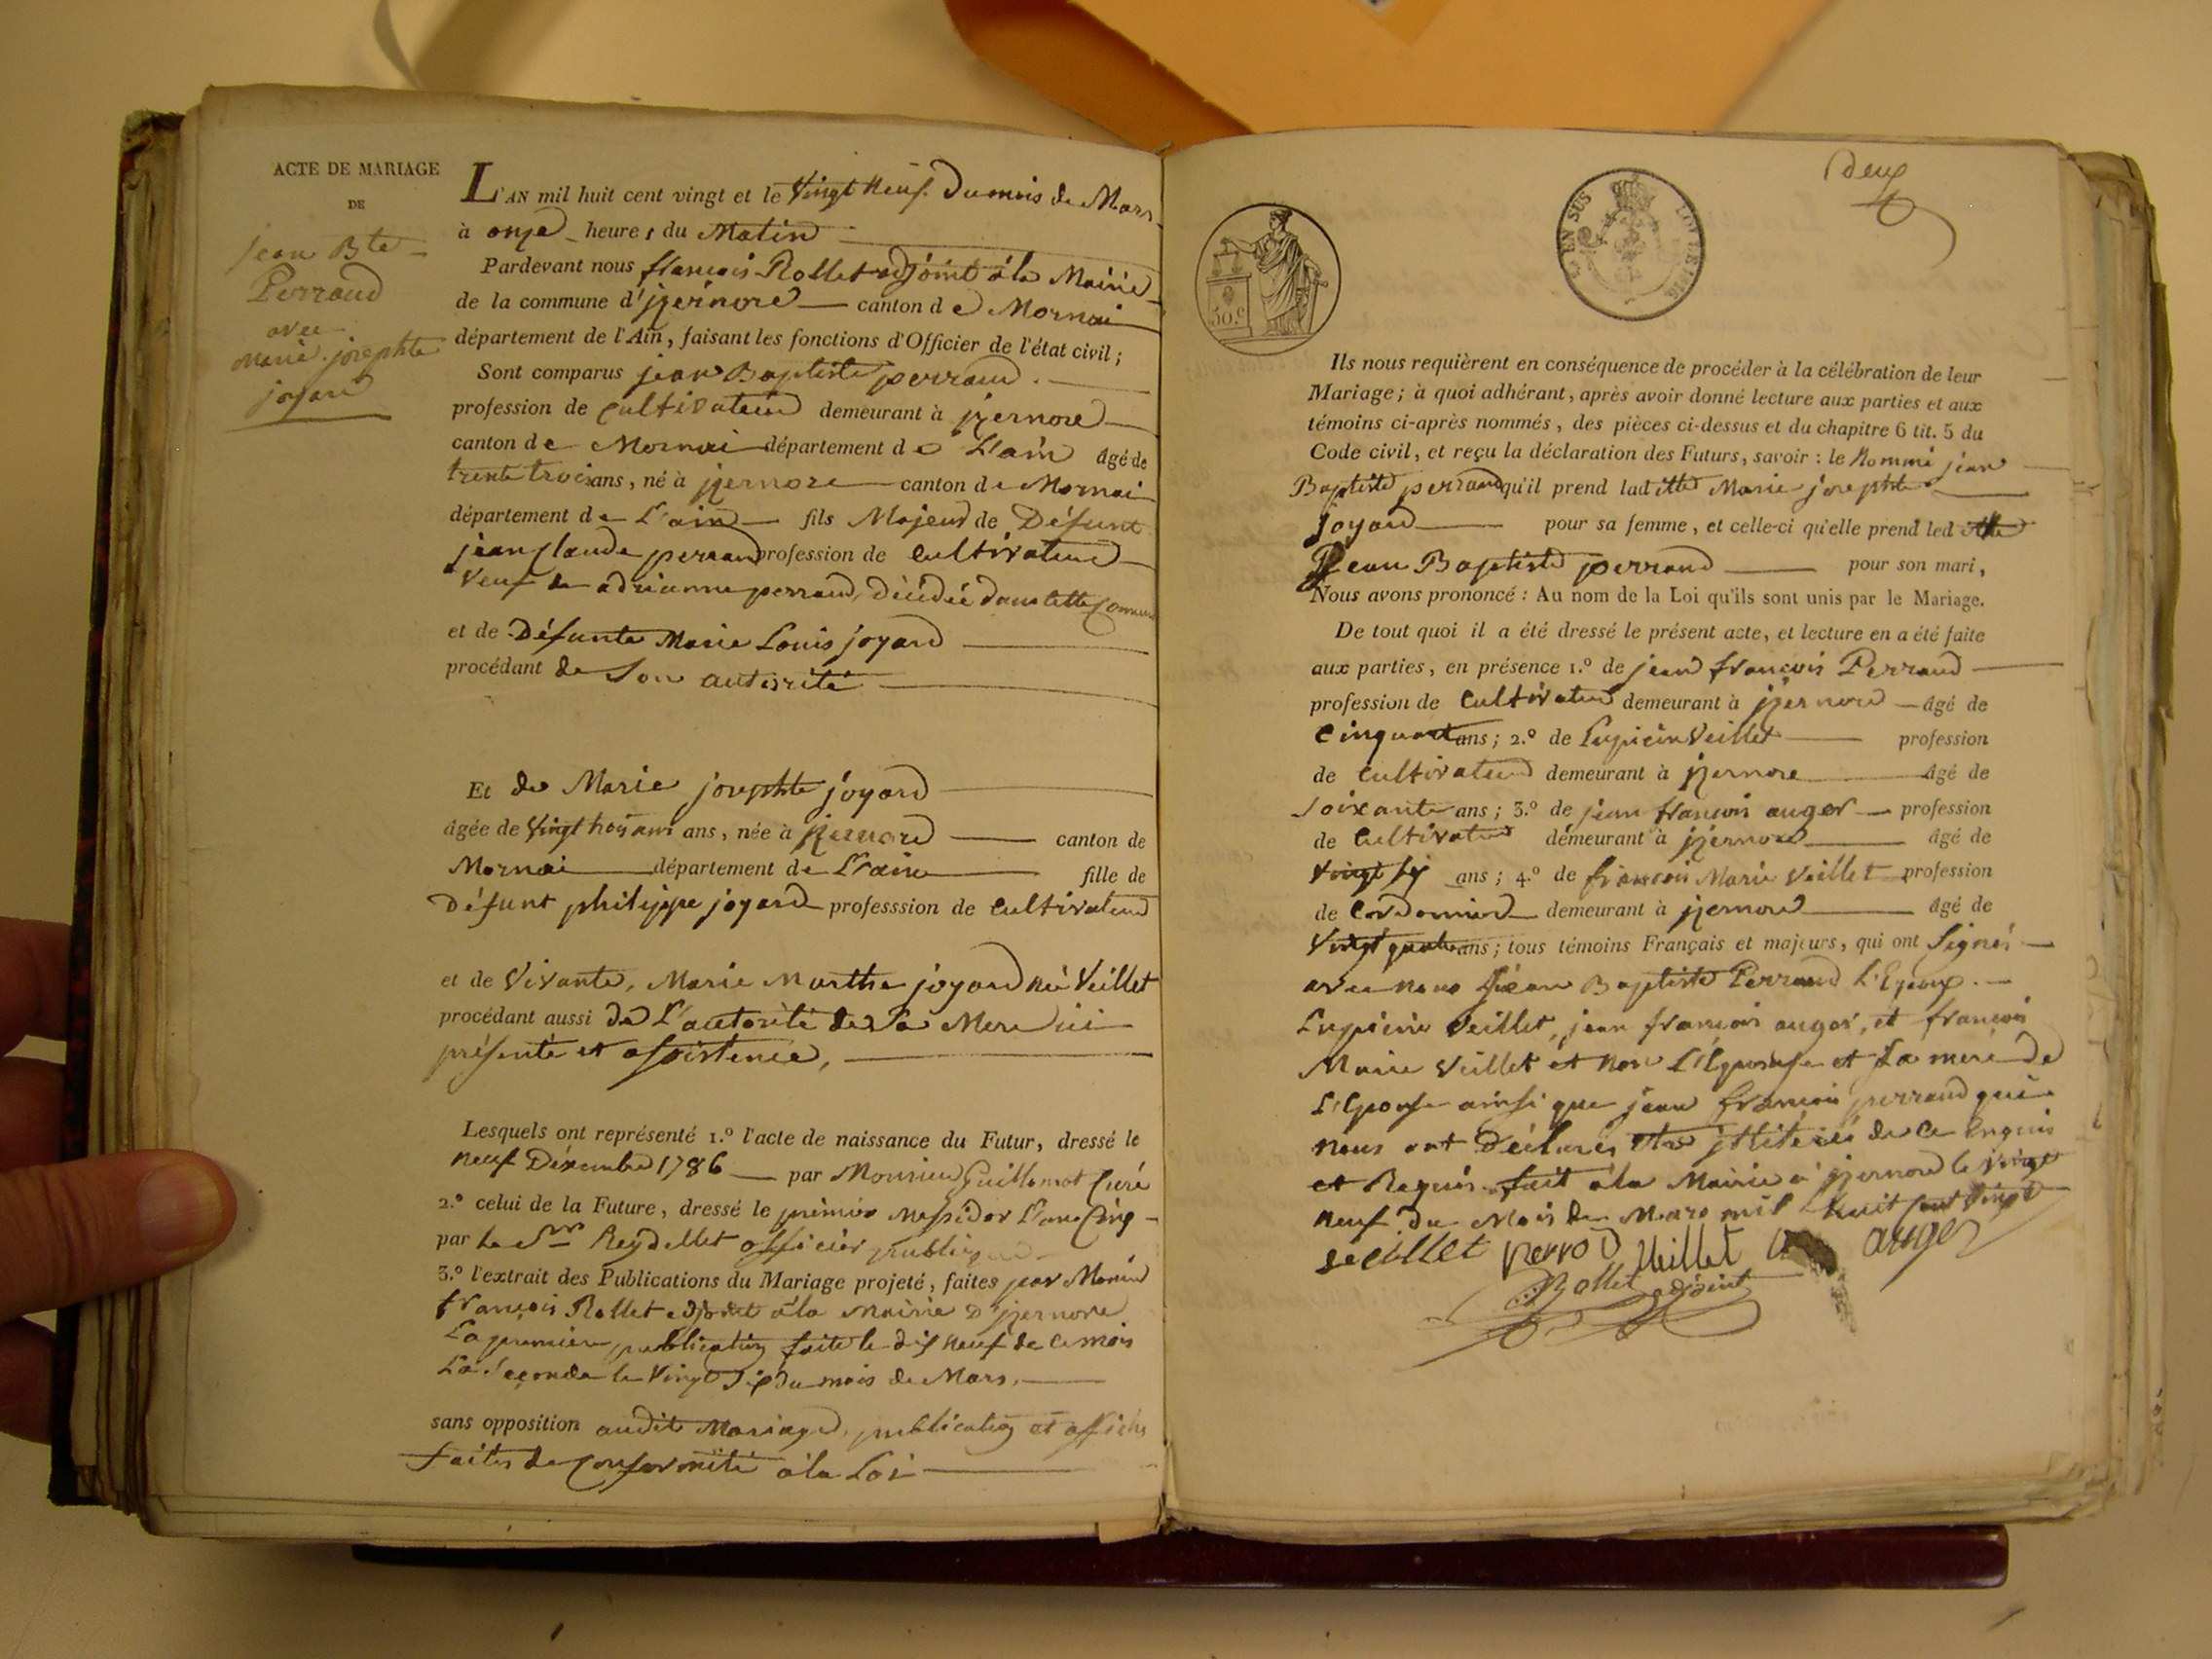 ACTE DE MARIAGE
DE
jean Bte
Perraud
avec
Marie josephte
joyard
L'AN mil huit cent vingt et le vingt neuf du mois de Mars
à onze heures du Matin
Pardevant nous françois Rollet adjoint à la Mairie
de la commune d'jzernore canton de Mornai
département de l'Ain, faisant les fonctions d'Officier de l'état civil;
Sont comparus jean Baptiste perraud
profession de Cultivateur demeurant à jzernore
canton de Mornai département de L'ain âgé de
trente trois ans, né à jzernore canton de Mornai
département de L'ain fils Majeur de Défunt
jean Claude perraud profession de Cultivateur
veuf de adrianne perraud, décédée dans cette Commune
et de Défunte Marie Louis joyard
procédant de Son autorité
Et de Marie josephte joyard
âgée de vingt trois ans ans, née à jzernore canton de
Mornai département de L'ain fille de
Défunt philippe joyard professsion de Cultivateur
et de Vivante, Marie Marthe joyard née Veillet
procédant aussi de L'autorité de Sa Mere ici
présente et assistence,
Lesquels ont représenté 1.º l'acte de naissance du Futur, dressé le
neuf Décembre 1786 par Monsieur Guillemot Curé
2.º celui de la Future, dressé le premier Messidor L'an Cinq
par le Sr Reydellet officier public
3.º l'extrait des Publications du Mariage projeté, faites par Monsieur
françois Rollet adjoint à la Mairie D'jzernore
La premiere publication faite le dix neuf de ce mois
La seconde le vingt Six du mois de Mars.
sans opposition audit Mariage, publication et affiche
faites de Conformité à la Loi
deux
50.C
EN SUS
LOI DE 1816
Ils nous requièrent en conséquence de procéder à la célébration de leur
Mariage; à quoi adhérant, après avoir donné lecture aux parties et aux
témoins ci-après nommés, des pièces ci-dessus et du chapitre 6 tit. 5 du
Code civil, et reçu la déclaration des Futurs, savoir: le Nommé jean
Baptiste perraud qu'il prend laditte Marie josephte
joyard pour sa femme, et celle-ci qu'elle prend led
Jean Baptiste perraud pour son mari,
Nous avons prononcé: Au nom de la Loi qu'ils sont unis par le Mariage.
De tout quoi il a été dressé le présent acte, et lecture en a été faite
aux parties, en présence 1.º de jean françois Perraud
profession de Cultivateur demeurant à jzernore âgé de
Cinquante ans; 2.º de Lupicin Veillet profession
de Cultivateur demeurant à jzernore âgé de
Soixante ans; 3.º de jean françois auger profession
de Cultivateur demeurant à jzernore âgé de
vingt six ans; 4.º de françois Marie Veillet profession
de Cordonnier demeurant à jzernore âgé de
vingt quatre ans; tous témoins Français et majeurs, qui ont Signés
avec nous jean Baptiste Perraud L'Epoux.
Lupicin Veillet, jean françois auger, et françois
Marie Veillet et non L'Epouse et La mere de
L'Epouse ainsi que jean françois perraud qui
nous ont Déclarés Etre jlliterés de ce Enquis
et Requis. fait à la Mairie à jzernore le vingt
neuf du Mois de Mars mil huit cent vingt
veillet perrod Veillet auger
Rollet adjoint